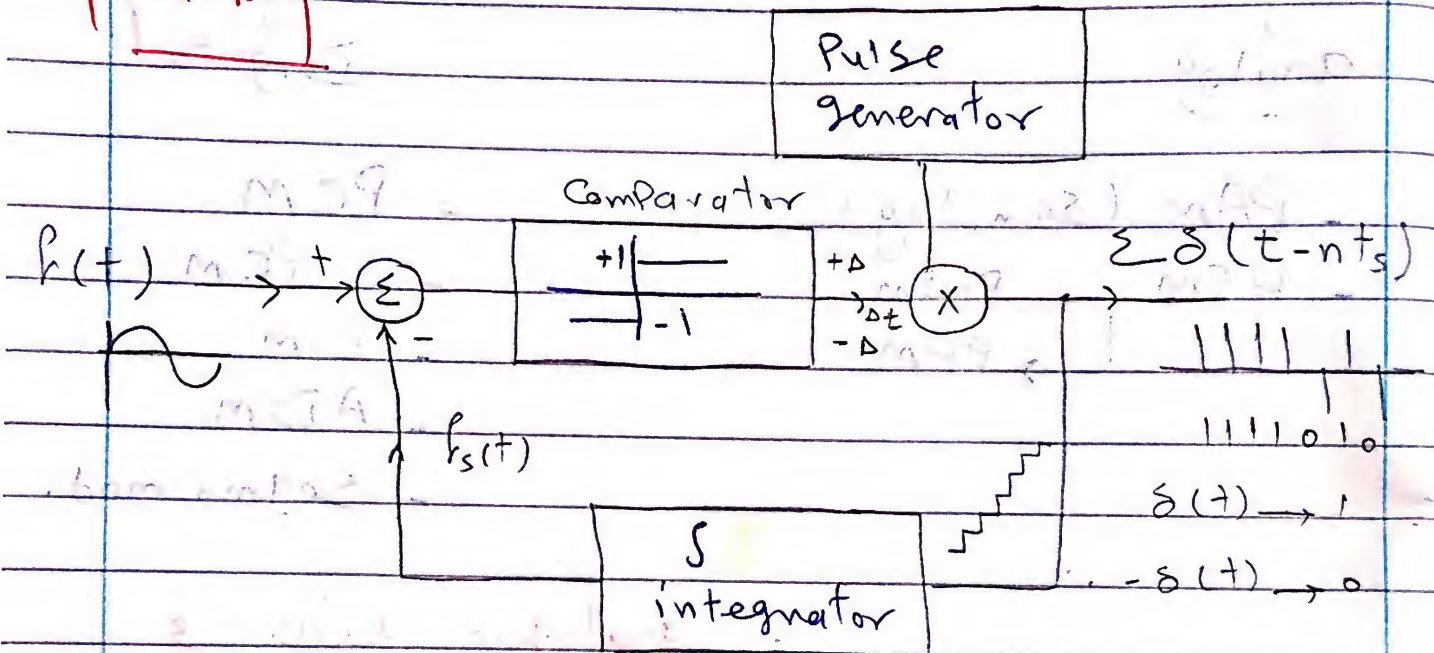 Pulse
generator
Comparator
f(t) + Σ +1 -1 +Δ -Δ Δt X Σ δ(t-nts)
-
fs(t)
1 1 1 1 0 1 0
δ(t) → 1
-δ(t) → 0
∫
integrator